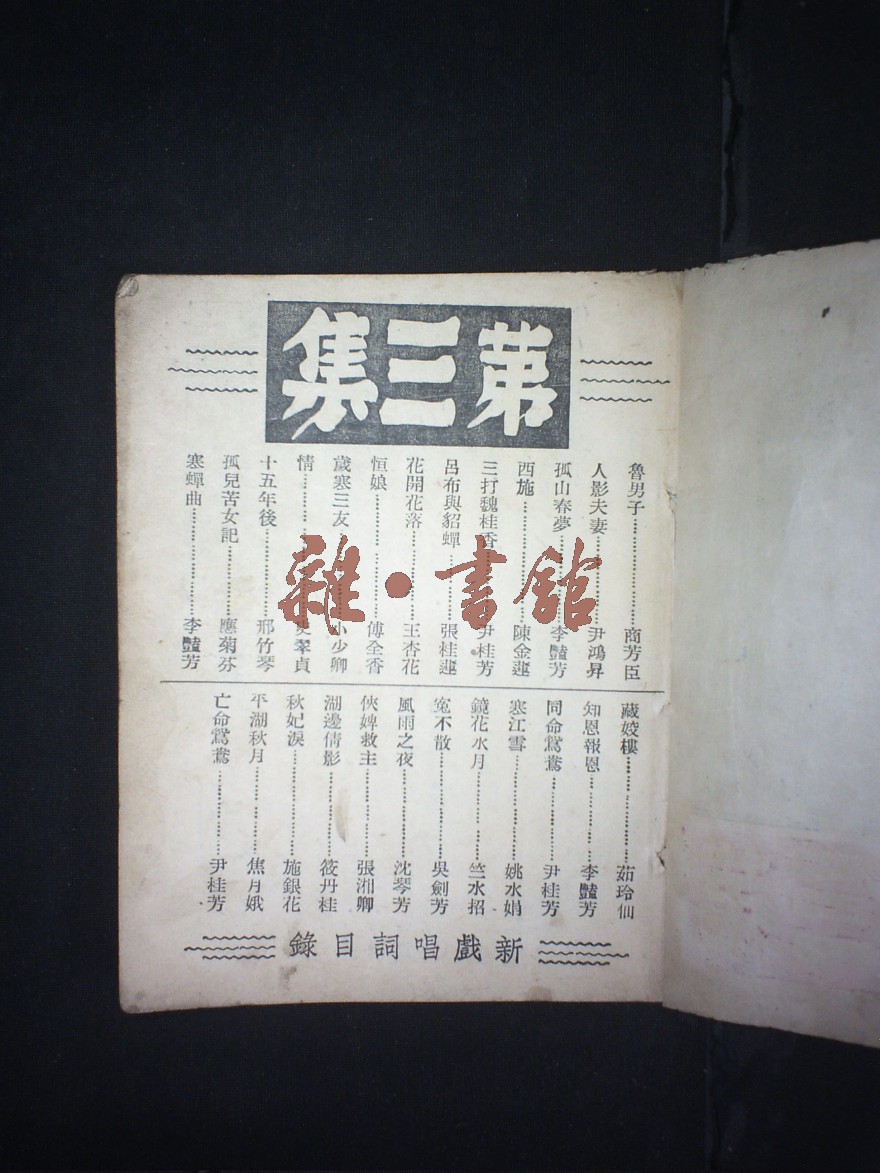 第三集
魯男子 商芳臣
人影夫妻 尹鴻昇
孤山春夢 李豔芳
西施 陳金蓮
三打魏桂香 尹桂芳
呂布與貂蟬 張桂蓮
花開花落 王杏花
恒娘 傅全香
歲寒三友 小少卿
情 翠貞
十五年後 邢竹琴
孤兒苦女記 應菊芬
寒蟬曲 李豔芳
藏姣樓 茹玲仙
知恩報恩 李豔芳
同命鴛鴦 尹桂芳
寒江雪 姚水娟
鏡花水月 竺水招
寃不散 吳劍芳
風雨之夜 沈琴芳
俠婢救主 張湘卿
湖邊倩影 筱丹桂
秋妃淚 施銀花
平湖秋月 焦月娥
亡命鴛鴦 尹桂芳
新戲唱詞目錄
雜·書館